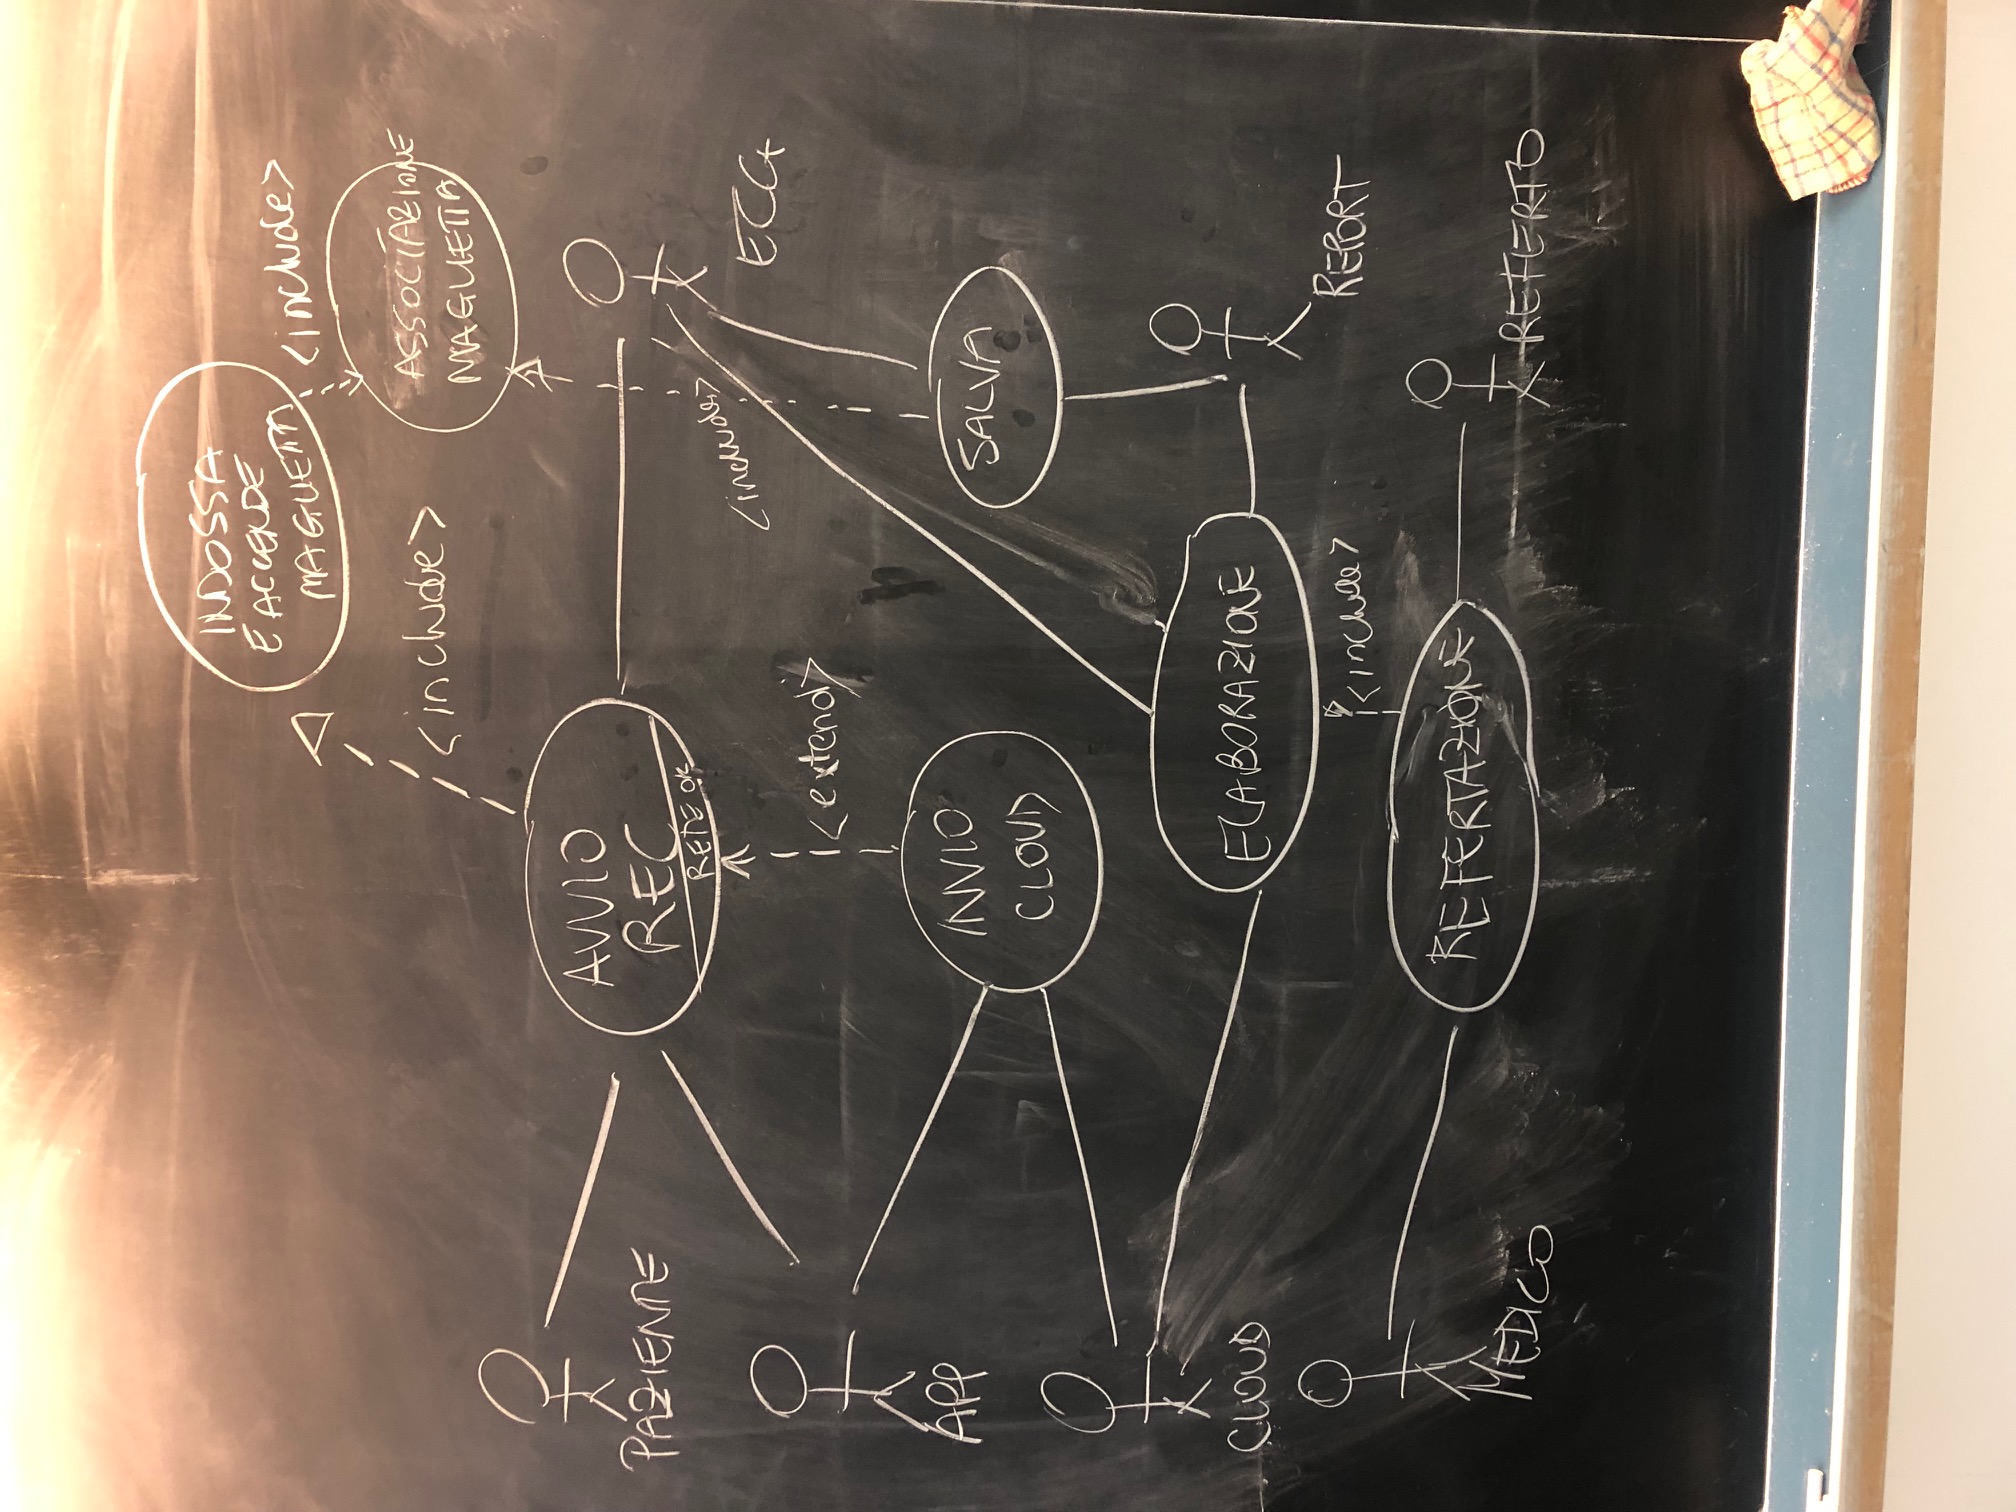 INDOSSA
E ACCENDE
MAGLIETTA
<include>
ASSOCIAZIONE
MAGLIETTA
<include>
AVVIO
REC
RETE OK
ECG
<include>
PAZIENTE
<extend>
INVIO
CLOUD
SALVA
APP
ELABORAZIONE
REPORT
CLOUD
<include>
REFERTAZIONE
REFERTO
MEDICO